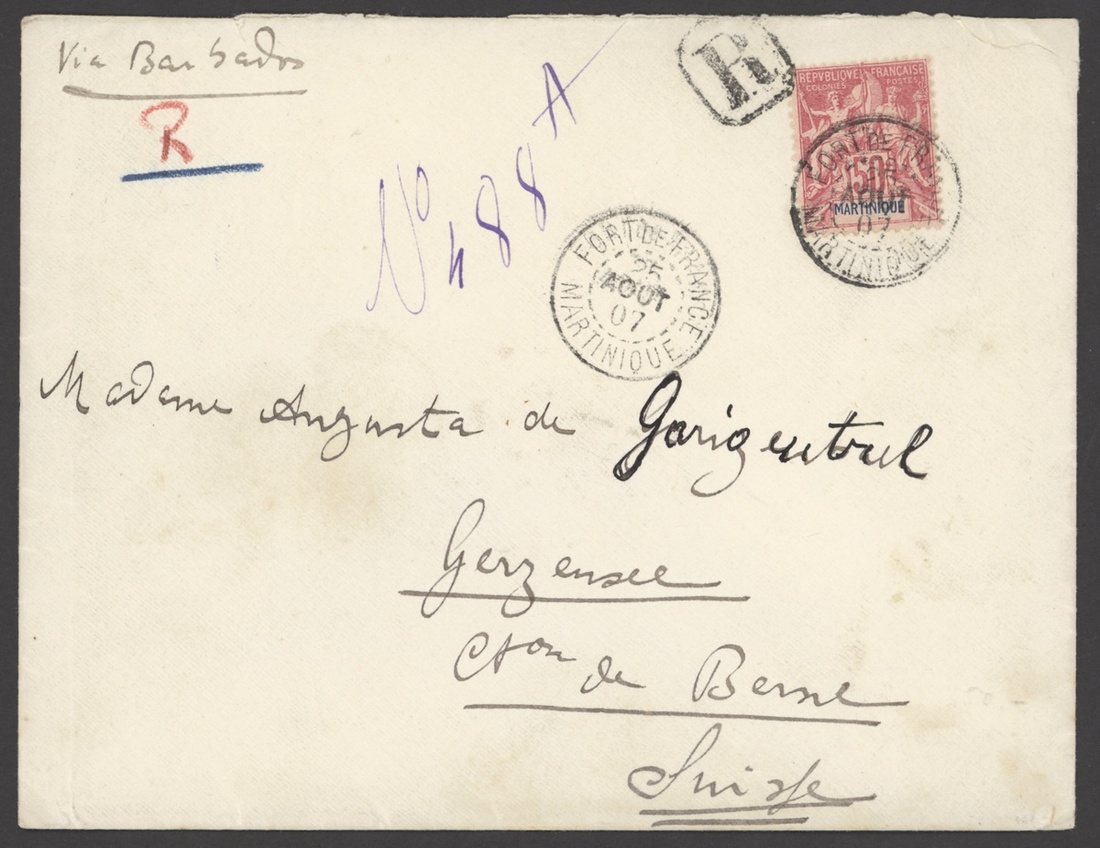 Via Barbados
R
R
No 488 A
REPVBLIQUE FRANÇAISE
COLONIES POSTES
50
MARTINIQUE
FORT DE FRANCE
AOUT
07
MARTINIQUE
FORT DE FRANCE
25
AOUT
07
MARTINIQUE
Madame Augusta de
Gerzensee
Cton de Berne
Suisse